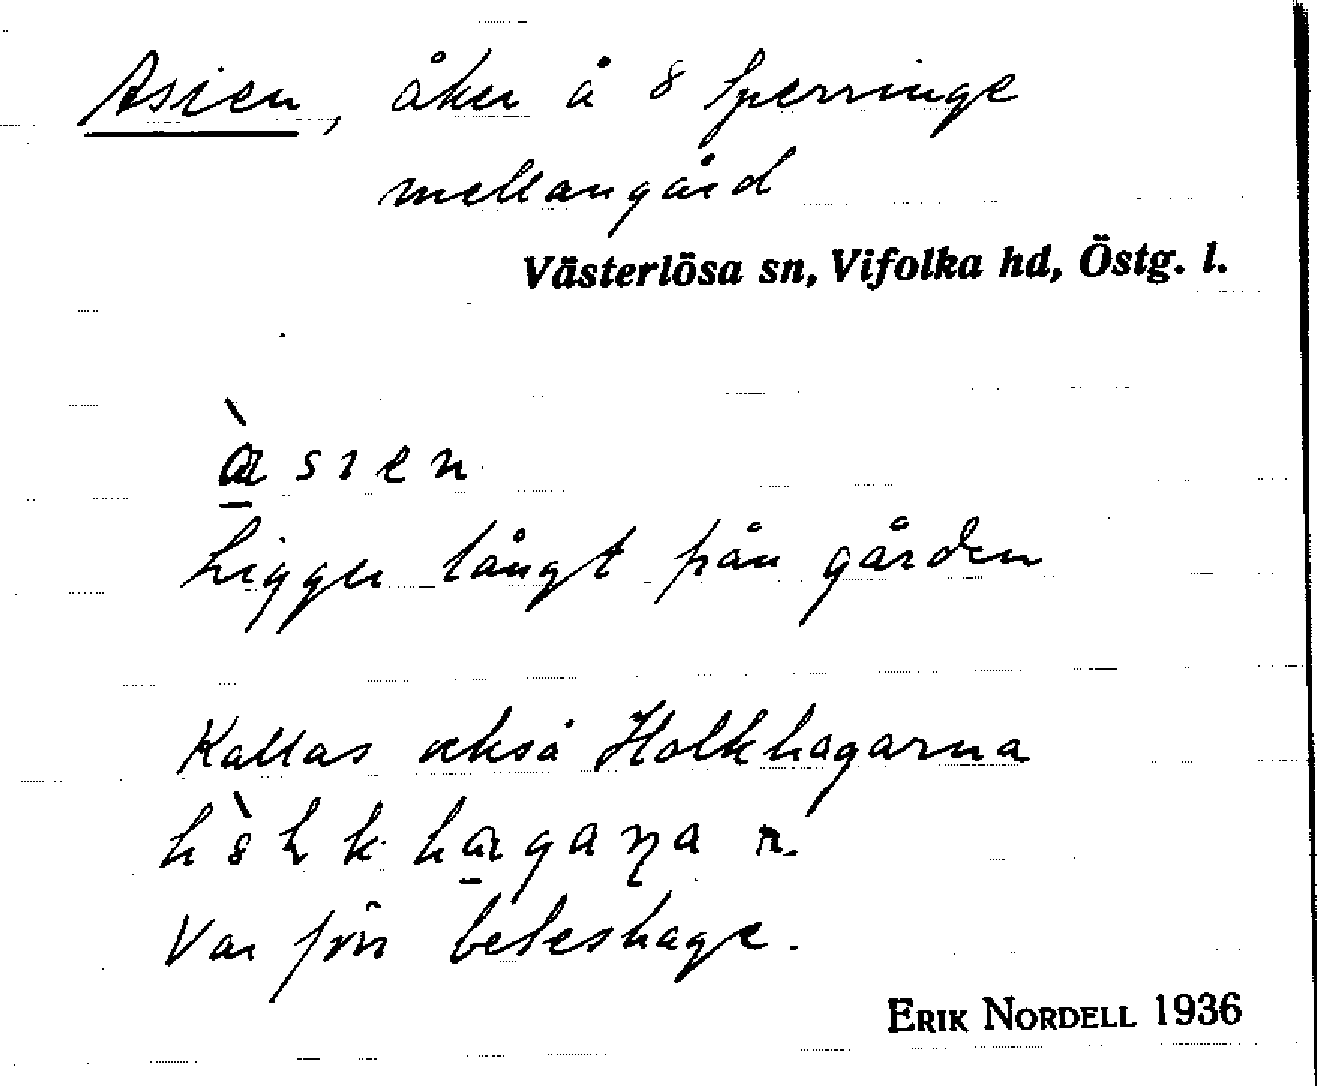 Asien, åker å 8 Sperringe
mellangård
Västerlösa sn, Vifolka hd, Östg. l.
àsıen
Ligger långt från gården
Kallas också Holkhagarna
Var förr beteshage.
ERIK NORDELL 1936